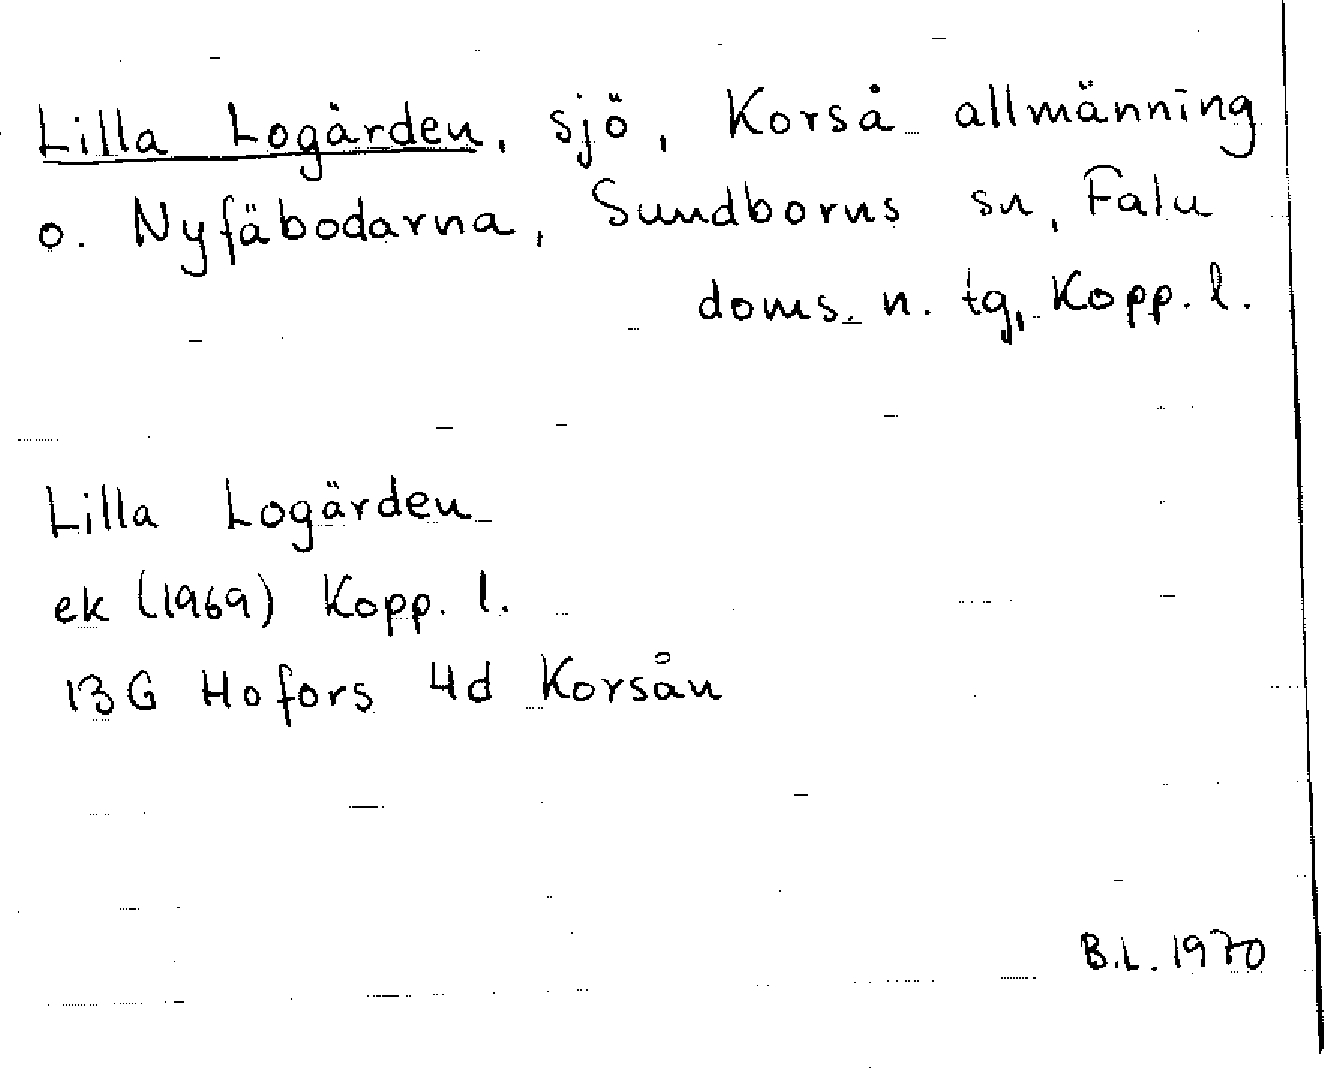 Lilla Logärden, sjö, Korså allmänning
o. Nyfäbodarna, Sundborns sn, Falu
doms. n. tg, Kopp. l.
Lilla Logärden
ek (1969) Kopp. l.
13G Hofors 4d Korsån
B.L. 1970